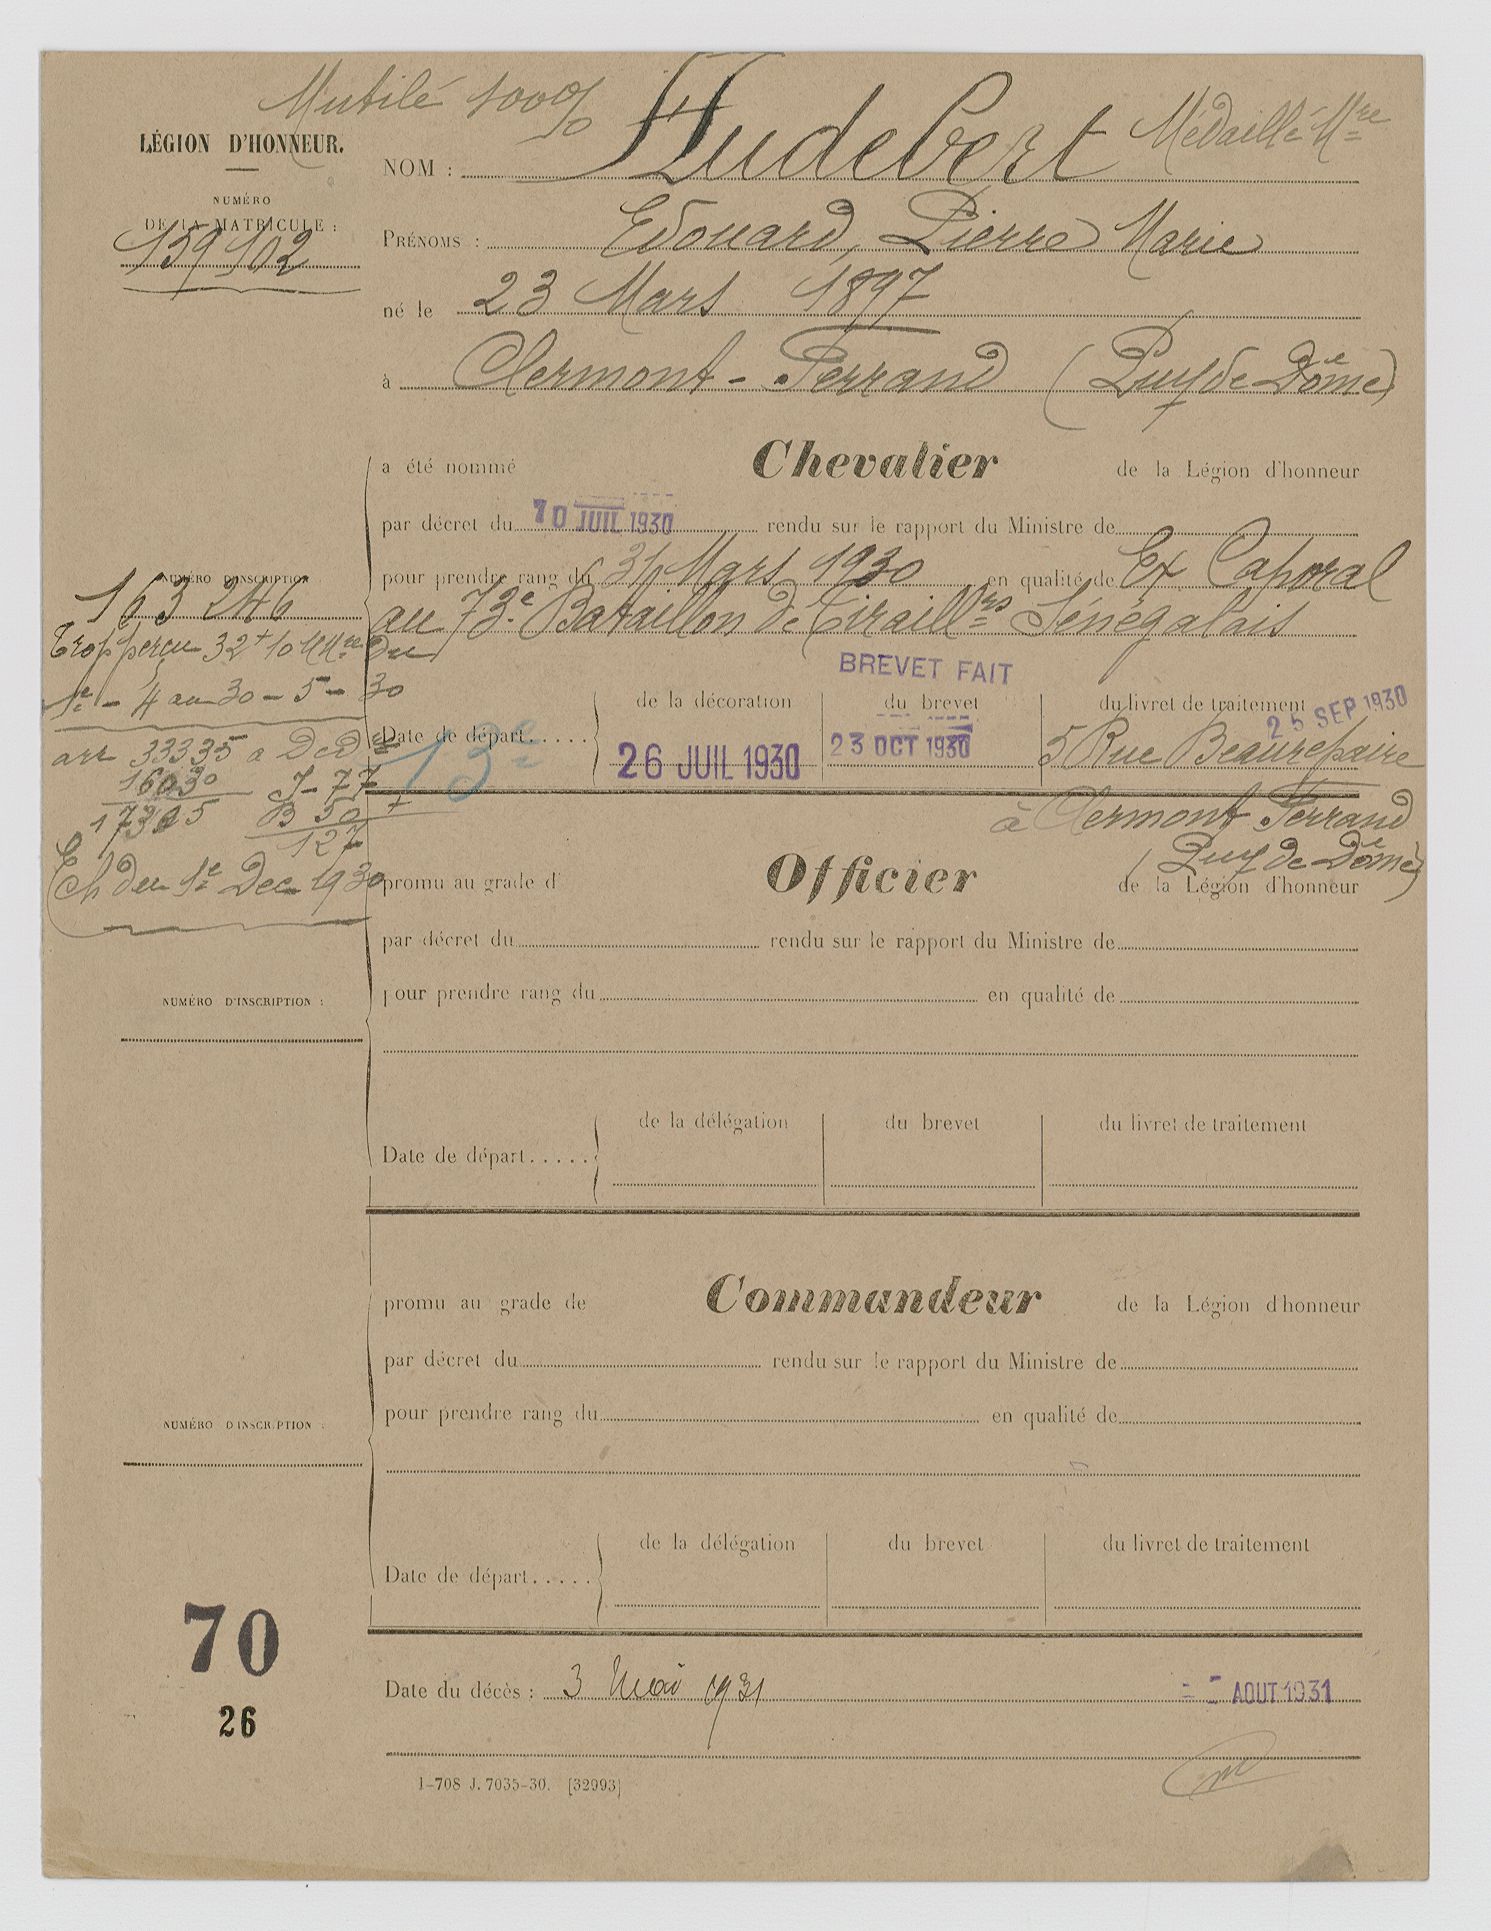 Mutilé 100%
LÉGION D'HONNEUR.
NUMÉRO
DE LA MATRICULE :
159102
NOM : Audebert Médaillé Mre
PRÉNOMS : Edouard, Pierre Marie
né le 23 Mars 1897
à Clermont-Ferrand (Puy de Dôme)
a été nommé Chevalier de la Légion d'honneur
par décret du 10 JUIL 1930 rendu sur le rapport du Ministre de
pour prendre rang du 31 Mars 1930 en qualité de Ex Caporal
au 73e Bataillon de Tiraillrs Sénégalais
NUMÉRO D'INSCRIPTION
163246
Trop perçu 32 + 10 MMre du
1e - 4 au 30 - 5 - 30
arr 33335 a Ded
16030 J - 77
17305 B 50
127
Ch du 1e Dec 1930
BREVET FAIT
de la décoration du brevet du livret de traitement
25 SEP 1930
Date de départ..... 26 JUIL 1930 23 OCT 1930 5 Rue Beaurepaire
13e
à Clermont Ferrand
(Puy de Dôme)
promu au grade d' Officier de la Légion d'honneur
par décret du rendu sur le rapport du Ministre de
NUMÉRO D'INSCRIPTION :
pour prendre rang du en qualité de
de la délégation du brevet du livret de traitement
Date de départ.....
promu au grade de Commandeur de la Légion d'honneur
par décret du rendu sur le rapport du Ministre de
NUMÉRO D'INSCRIPTION :
pour prendre rang du en qualité de
de la délégation du brevet du livret de traitement
Date de départ.....
70
26
Date du décès : 3 Mai 1931 AOUT 1931
1-708 J. 7035-30. [32993]